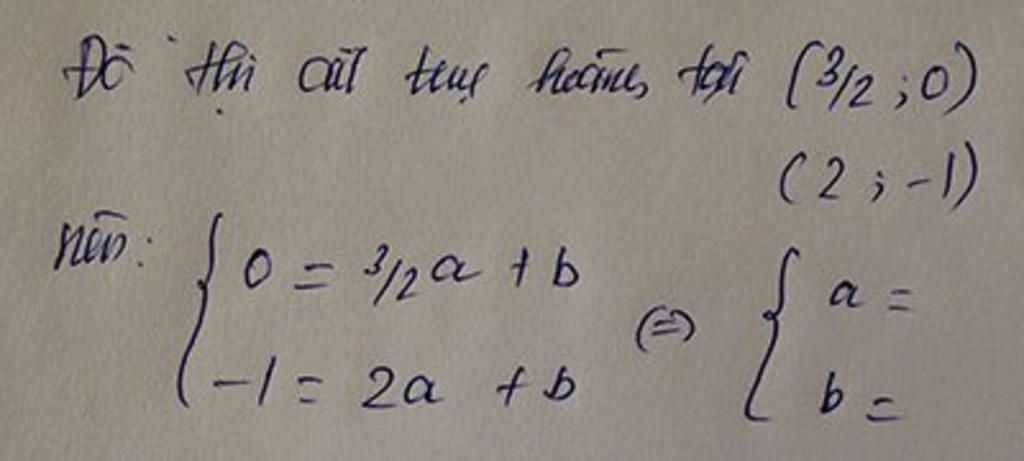 Đồ thị cắt trục hoành tại (3/2 ; 0)
(2 ; -1)
nên: { 0 = 3/2a + b
-1 = 2a + b
(=) { a =
b =